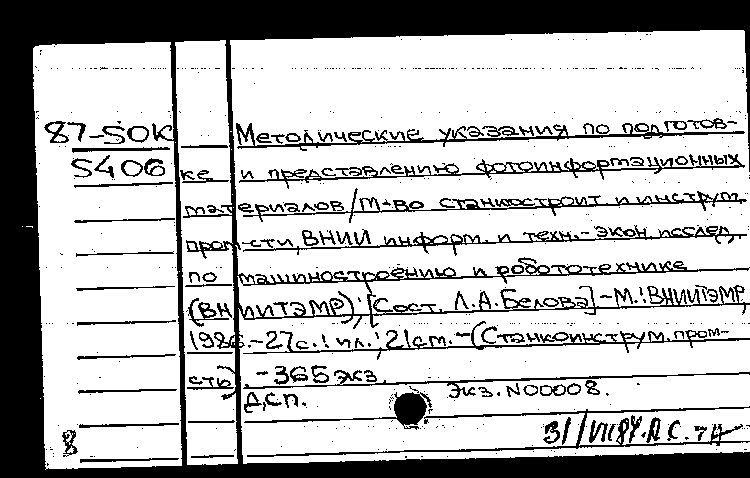 87-50К Методические указания по подготов-
5406 ке и представлению фотоинформационных
материалов/М-во станкостроит. и инструм.
пром-сти, ВНИИ информ. и техн.-экон. исслед.
по машиностроению и робототехнике
(ВНИИТЭМР); [Сост. Л.А.Белова]-М.:ВНИИТЭМР,
1986.-27с.: ил.; 21см.-(Станкоинструм. пром-
сть). -365 экз.
ДСП. Экз. N00008.
8